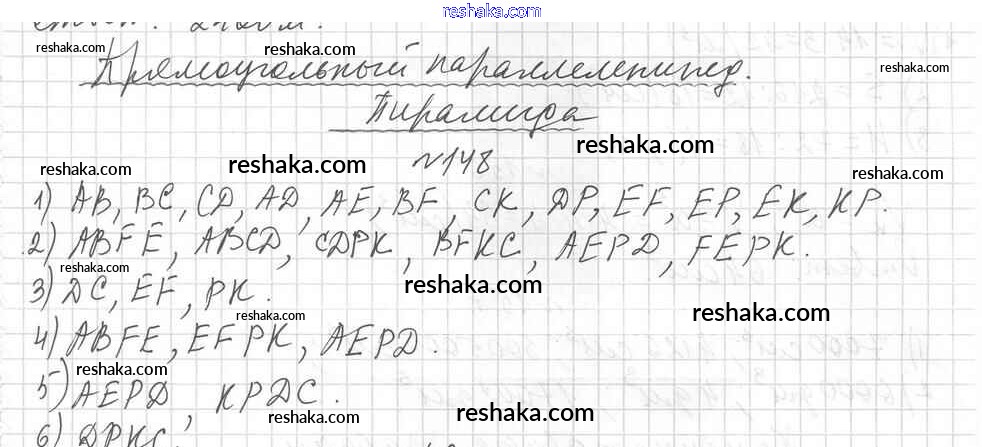 reshaka.com
reshaka.com reshaka.com reshaka.com
Прямоугольный параллелепипед.
Пирамида
reshaka.com reshaka.com reshaka.com
№148
1) AB, BC, CD, AD, AE, BF, CK, DP, EF, EP, EK, KP.
2) ABFE, ABCD, CDPK, BFKC, AEPD, FEPK.
reshaka.com reshaka.com
3) DC, EF, PK.
reshaka.com reshaka.com
4) ABFE, EFPK, AEPD.
reshaka.com
5) AEPD, KPDC.
reshaka.com reshaka.com
6) DPKC,